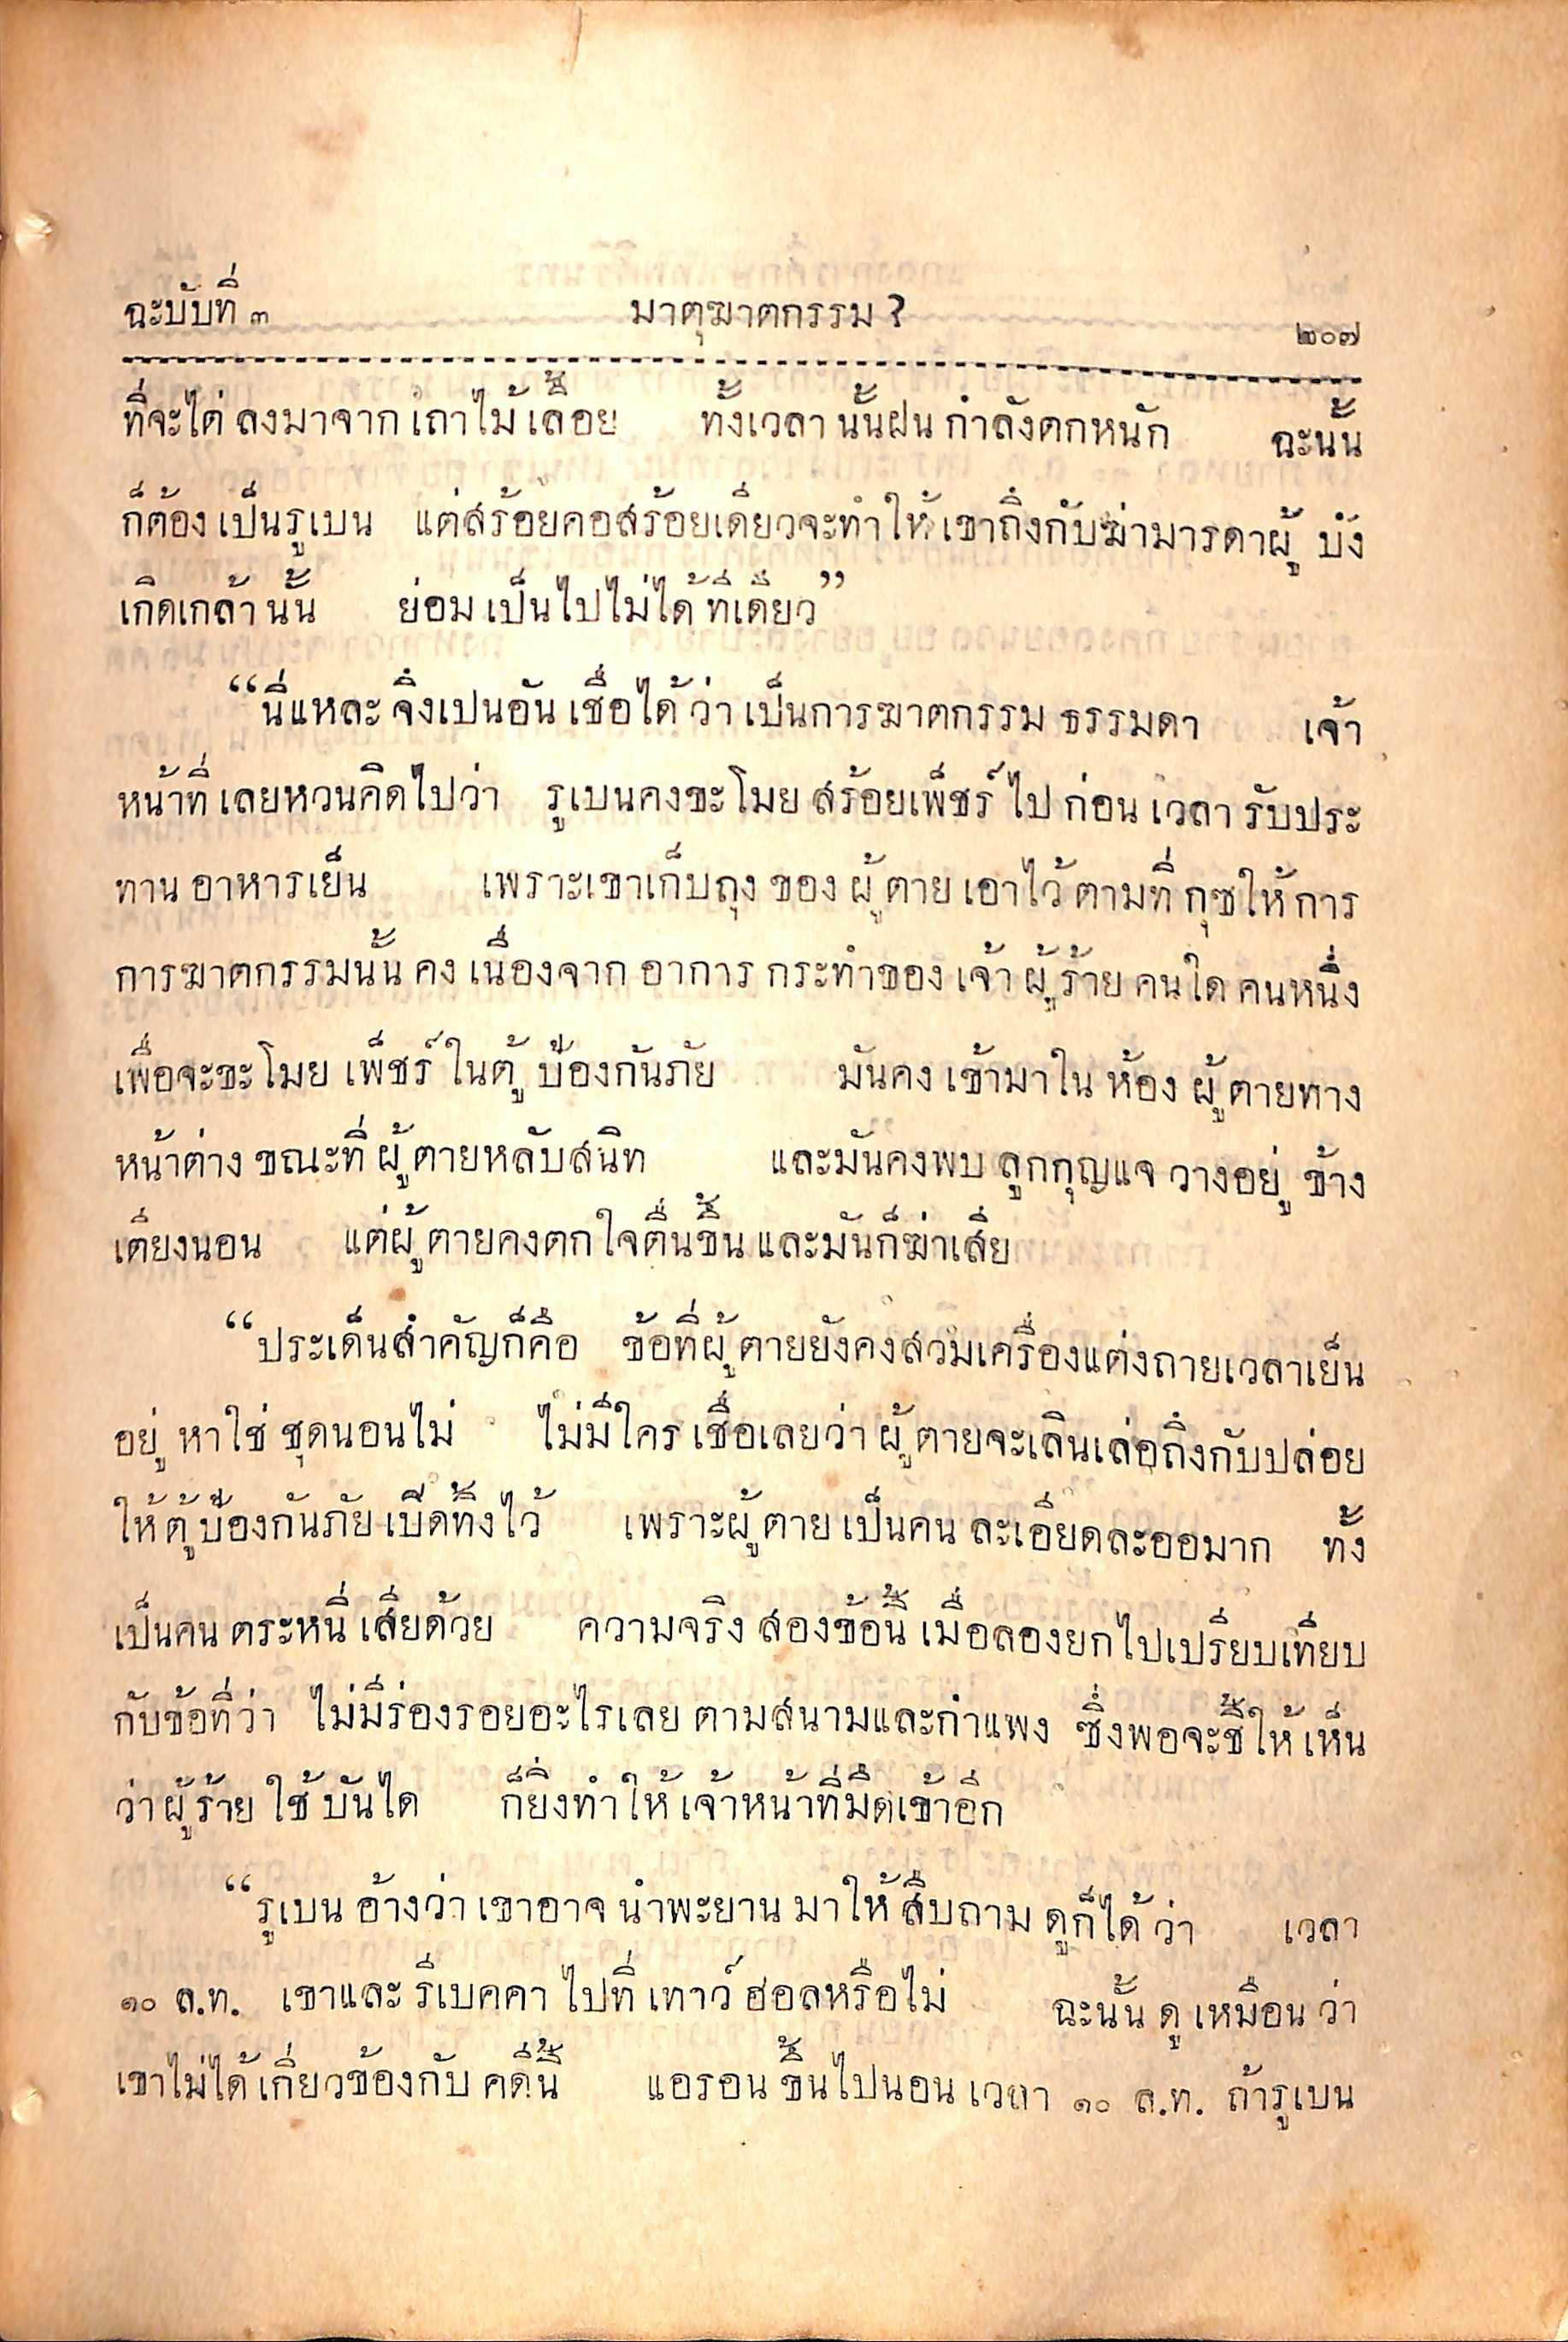 ฉะบับที่ ๓ มาตุฆาตกรรม ? ๒๐๗
ที่จะไต่ลงมาจากเถาไม้เลื้อย ทั้งเวลานั้นฝนกำลังตกหนัก ฉะนั้น
ก็ต้องเป็นรูเบน แต่สร้อยคอสร้อยเดียวจะทำให้เขาถึงกับฆ่ามารดาผู้บัง
เกิดเกล้านั้น ย่อมเป็นไปไม่ได้ทีเดียว”
“นี่แหละจึงเปนอันเชื่อได้ว่าเป็นการฆาตกรรมธรรมดา เจ้า
หน้าที่เลยหวนคิดไปว่า รูเบนคงขะโมยสร้อยเพ็ชร์ไปก่อนเวลารับประ
ทานอาหารเย็น เพราะเขาเก็บถุงของผู้ตายเอาไว้ตามที่กุซให้การ
การฆาตกรรมนั้นคงเนื่องจากอาการกระทำของเจ้าผู้ร้ายคนใดคนหนึ่ง
เพื่อจะขะโมยเพ็ชร์ในตู้ป้องกันภัย มันคงเข้ามาในห้องผู้ตายทาง
หน้าต่างขณะที่ผู้ตายหลับสนิท และมันคงพบลูกกุญแจวางอยู่ข้าง
เตียงนอน แต่ผู้ตายคงตกใจตื่นขึ้นและมันก็ฆ่าเสีย
“ประเด็นสำคัญก็คือ ข้อที่ผู้ตายยังคงสวมเครื่องแต่งกายเวลาเย็น
อยู่ หาใช่ชุดนอนไม่ ไม่มีใครเชื่อเลยว่าผู้ตายจะเลินเล่อถึงกับปล่อย
ให้ตู้ป้องกันภัยเปิดทิ้งไว้ เพราะผู้ตายเป็นคนละเอียดละออมาก ทั้ง
เป็นคนตระหนี่เสียด้วย ความจริงสองข้อนี้เมื่อลองยกไปเปรียบเทียบ
กับข้อที่ว่า ไม่มีร่องรอยอะไรเลยตามสนามและกำแพง ซึ่งพอจะชี้ให้เห็น
ว่าผู้ร้ายใช้บันได ก็ยิ่งทำให้เจ้าหน้าที่มืดเข้าอีก
“รูเบนอ้างว่าเขาอาจนำพะยานมาให้สืบถามดูก็ได้ว่า เวลา
๑๐ ล.ท. เขาและรีเบคคาไปที่เทาว์ฮอลหรือไม่ ฉะนั้นดูเหมือนว่า
เขาไม่ได้เกี่ยวข้องกับคดีนี้ แอรอนขึ้นไปนอนเวลา ๑๐ ล.ท. ถ้ารูเบน